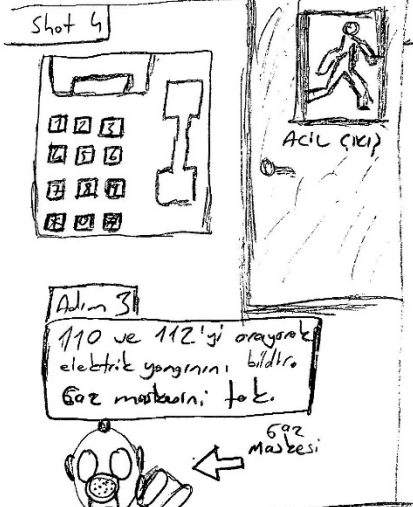 Shot 4
1 2 3
4 5 6
7 8 9
* 0 #
ACİL ÇIKIŞ
Adım 3
110 ve 112'yi arayarak
elektrik yangınını bildir.
Gaz maskesini tak.
Gaz
Maskesi